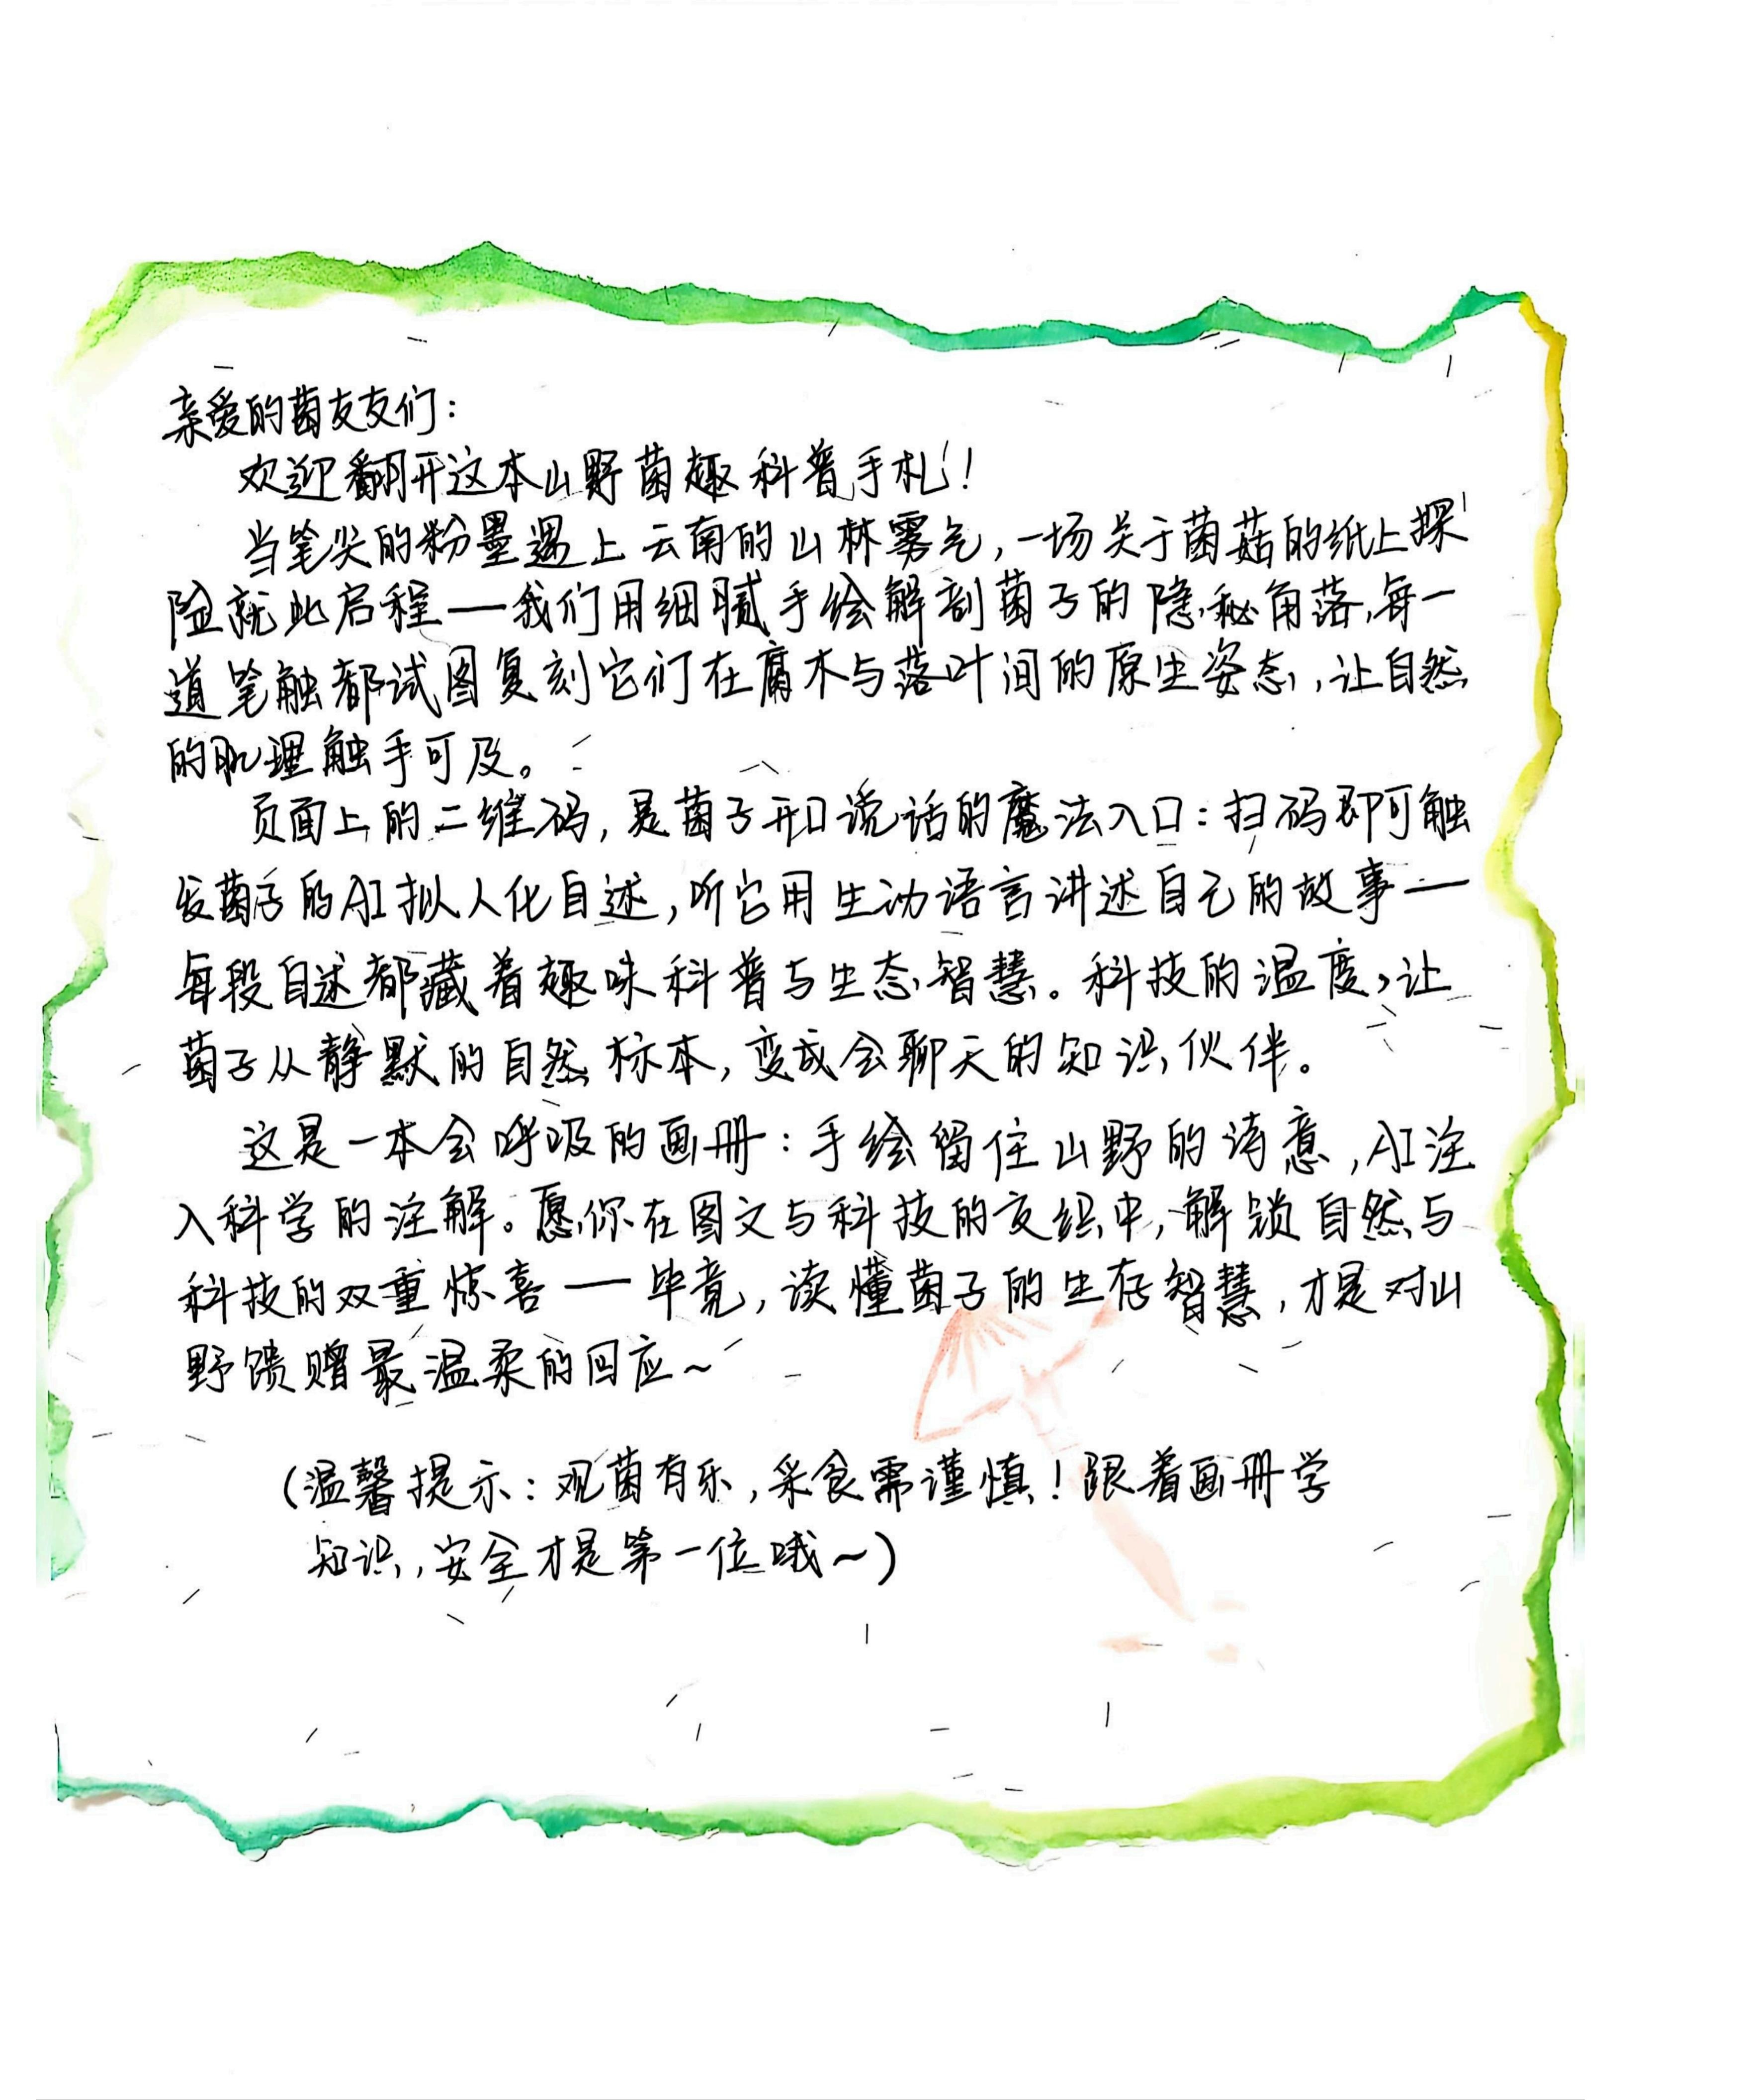 亲爱的菌友友们：
欢迎翻开这本山野菌趣科普手札！
当笔尖的粉墨遇上云南的山林雾气，一场关于菌菇的纸上探
险就此启程——我们用细腻手绘解剖菌子的隐秘角落，每一
道笔触都试图复刻它们在腐木与落叶间的原生姿态，让自然
的肌理触手可及。
页面上的二维码，是菌子开口说话的魔法入口：扫码即可触
发菌子的AI拟人化自述，听它用生动语言讲述自己的故事——
每段自述都藏着趣味科普与生态智慧。科技的温度，让
菌子从静默的自然标本，变成会聊天的知识伙伴。
这是一本会呼吸的画册：手绘留住山野的诗意，AI注
入科学的注解。愿你在图文与科技的交织中，解锁自然与
科技的双重惊喜——毕竟，读懂菌子的生存智慧，才是对山
野馈赠最温柔的回应～
（温馨提示：观菌有乐，采食需谨慎！跟着画册学
知识，安全才是第一位哦～）